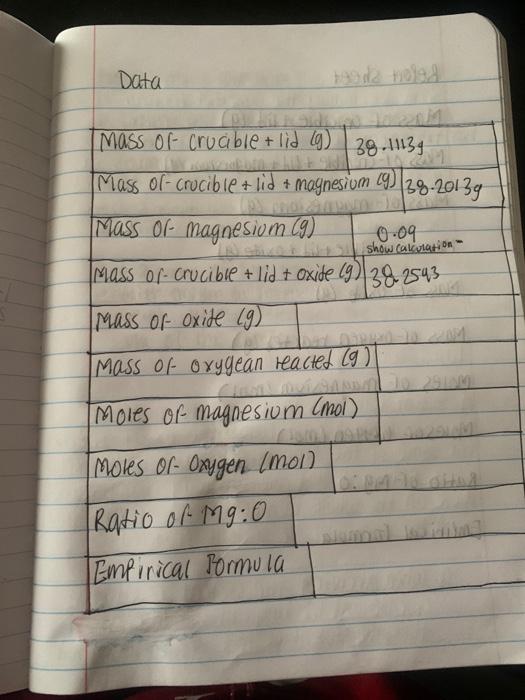 Data
Mass of crucible + lid (g) 38.1113g
Mass of crucible + lid + magnesium (g) 38.2013g
Mass of magnesium (g) 0.09
show calculation-
Mass of crucible + lid + oxide (g) 38.2543
Mass of oxide (g)
Mass of oxygean reacted (g)
Moles of magnesium (mol)
Moles of Oxygen (mol)
Ratio of Mg:O
Empirical Formula